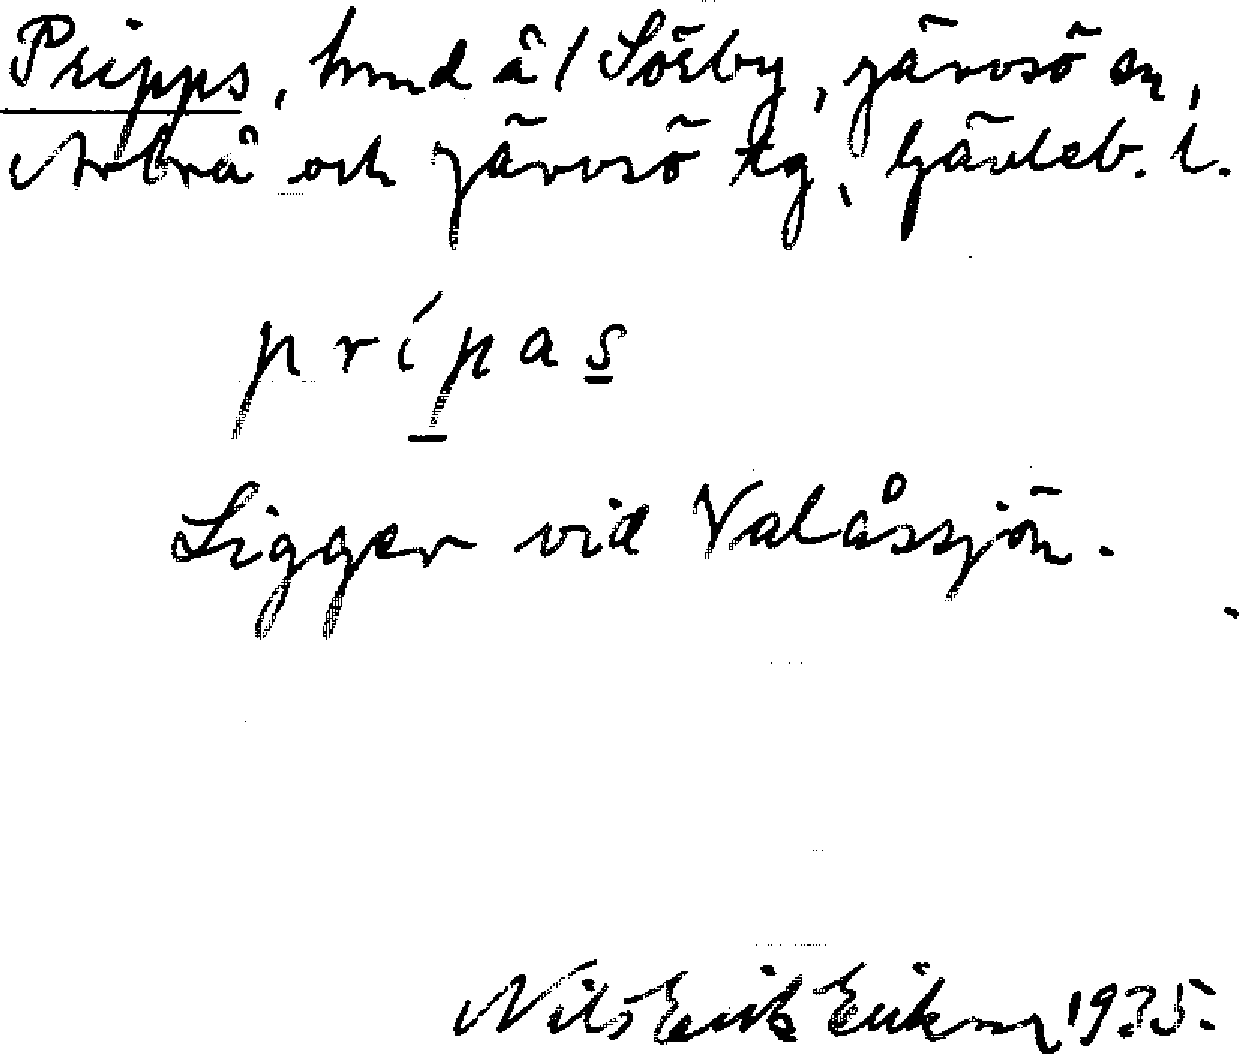 Pripps, hmd å / Sörby, Järvsö sn,
Arbrå och Järvsö tg, Gävleb. l.
prípas
Ligger vid Valåssjön.
Nils Erik Eriksson 1935.